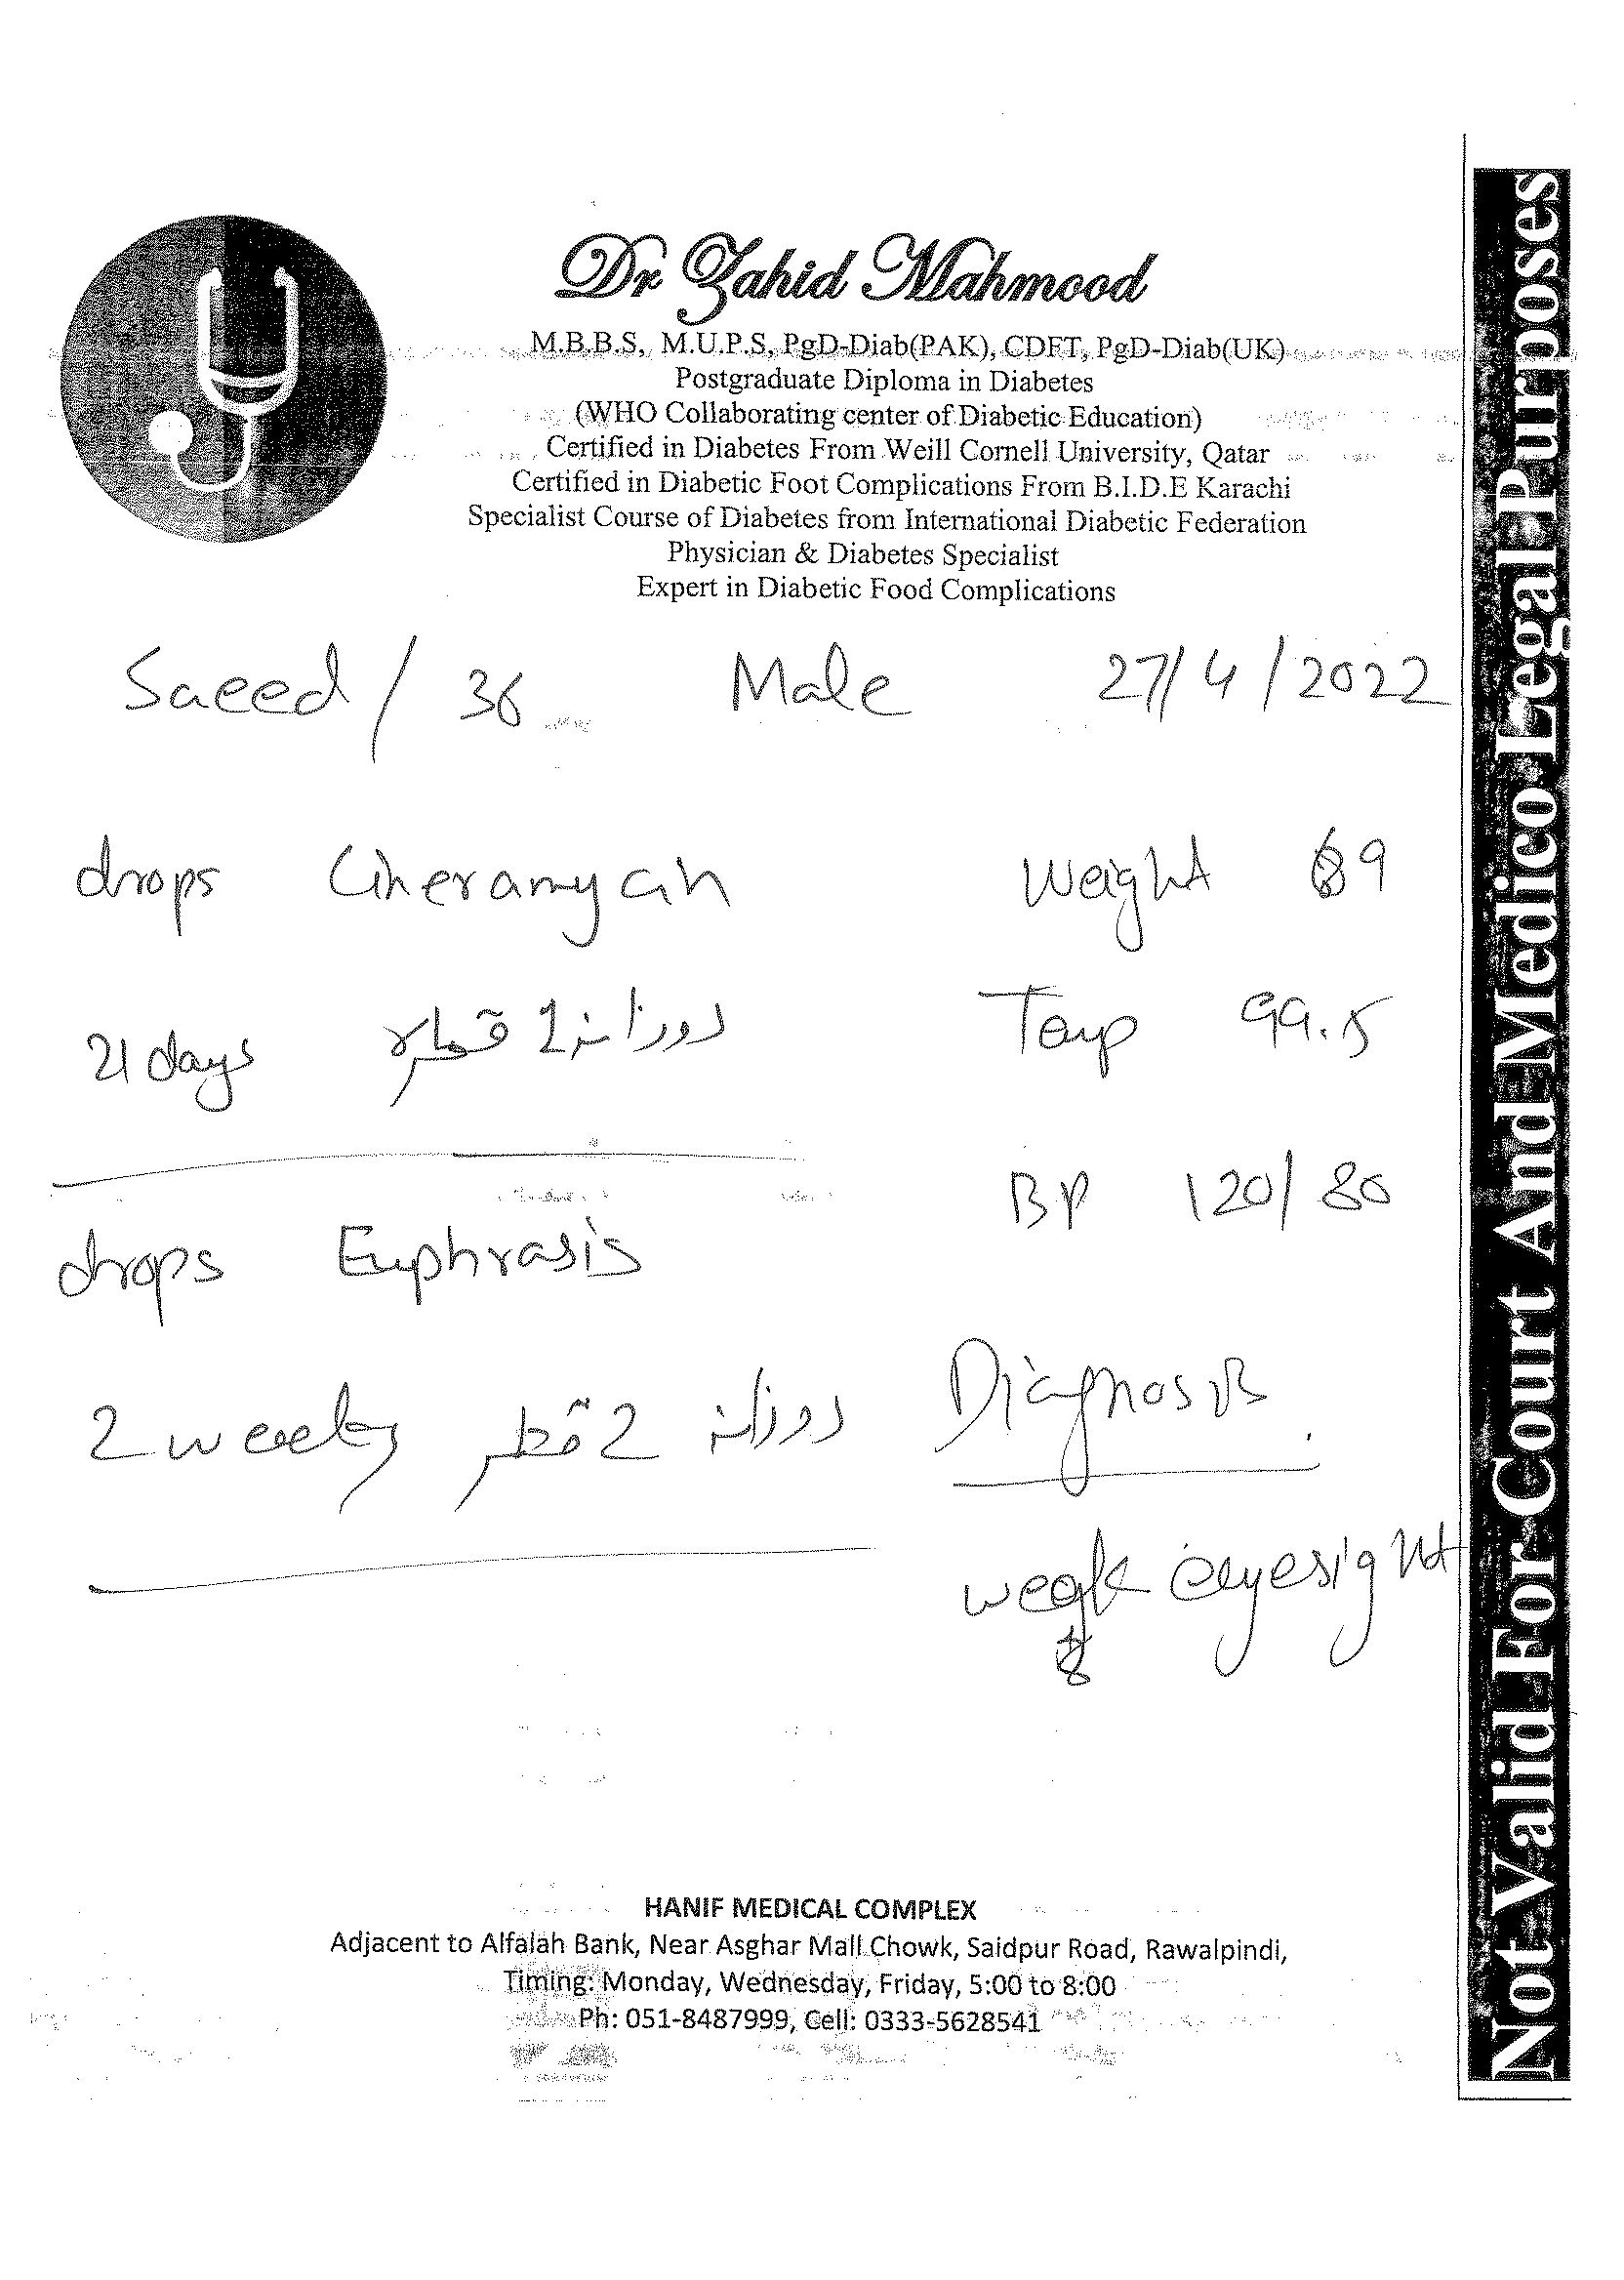 Dr Zahid Mahmood
M.B.B.S, M.U.P.S, PgD-Diab(PAK), CDFT, PgD-Diab(UK)
Postgraduate Diploma in Diabetes
(WHO Collaborating center of Diabetic Education)
Certified in Diabetes From Weill Cornell University, Qatar
Certified in Diabetic Foot Complications From B.I.D.E Karachi
Specialist Course of Diabetes from International Diabetic Federation
Physician & Diabetes Specialist
Expert in Diabetic Food Complications
Saeed / 36 Male 27/4/2022
drops Cineramycin
Weight 69
21 days روزانہ 2 قطرہ
Temp 99.5
BP 120/80
drops Euphrasis
2 weeks روزانہ 2 قطر
Diagnosis
weak eyesight
HANIF MEDICAL COMPLEX
Adjacent to Alfalah Bank, Near Asghar Mall Chowk, Saidpur Road, Rawalpindi,
Timing: Monday, Wednesday, Friday, 5:00 to 8:00
Ph: 051-8487999, Cell: 0333-5628541
Not Valid For Court And Medico Legal Purposes